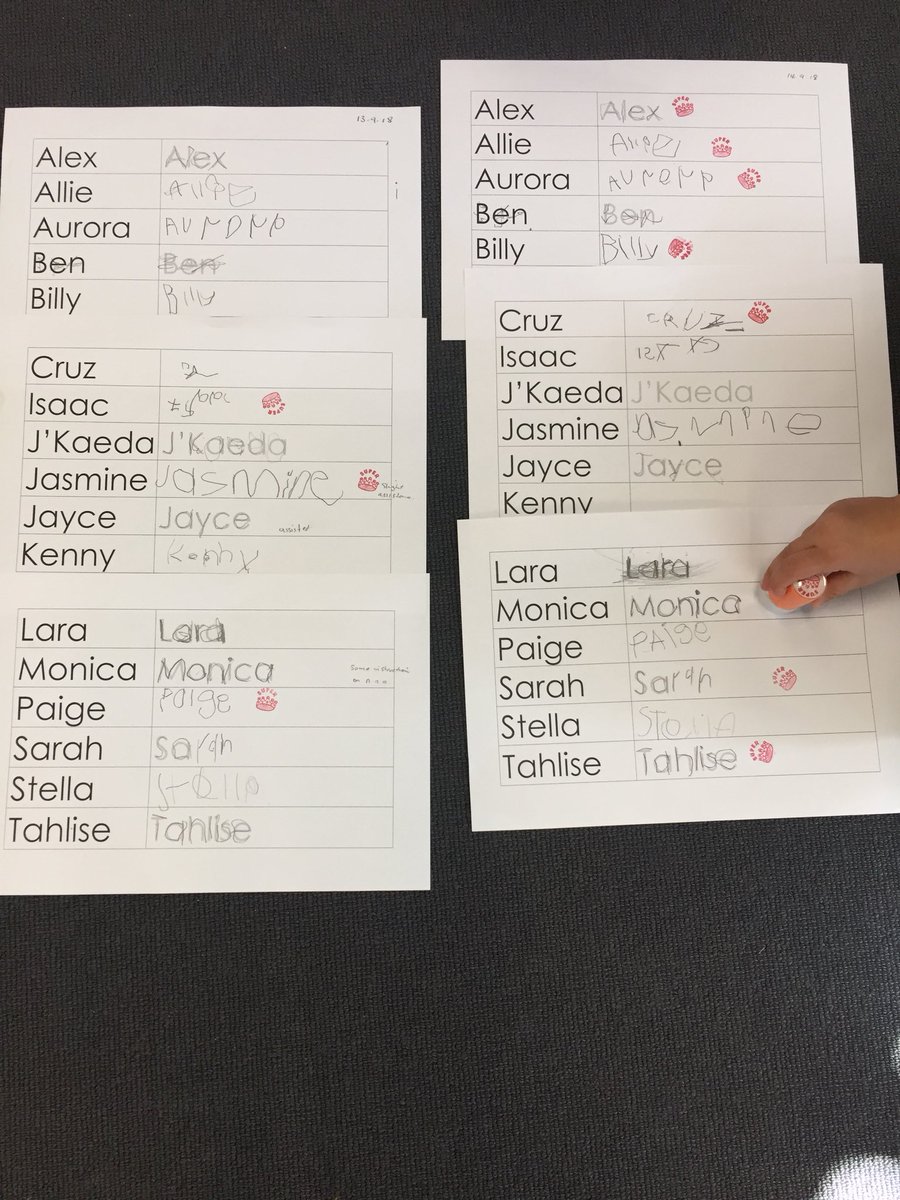 13.9.18
Alex Alex
Allie
Aurora
Ben Ben
Billy Billy
Cruz
Isaac SUPER
J'Kaeda J'Kaeda
Jasmine Jasmine SUPER
Jayce Jayce assisted
Kenny Kenny
Lara Lara
Monica Monica
Paige Paige SUPER
Sarah Sarah
Stella
Tahlise Tahlise
14.9.18
Alex Alex SUPER
Allie SUPER
Aurora SUPER
Ben Ben
Billy Billy SUPER
Cruz CRUZ SUPER
Isaac
J'Kaeda J'Kaeda
Jasmine
Jayce Jayce
Kenny
Lara Lara
Monica Monica SUPER
Paige PAige
Sarah Sarah SUPER
Stella
Tahlise Tahlise SUPER